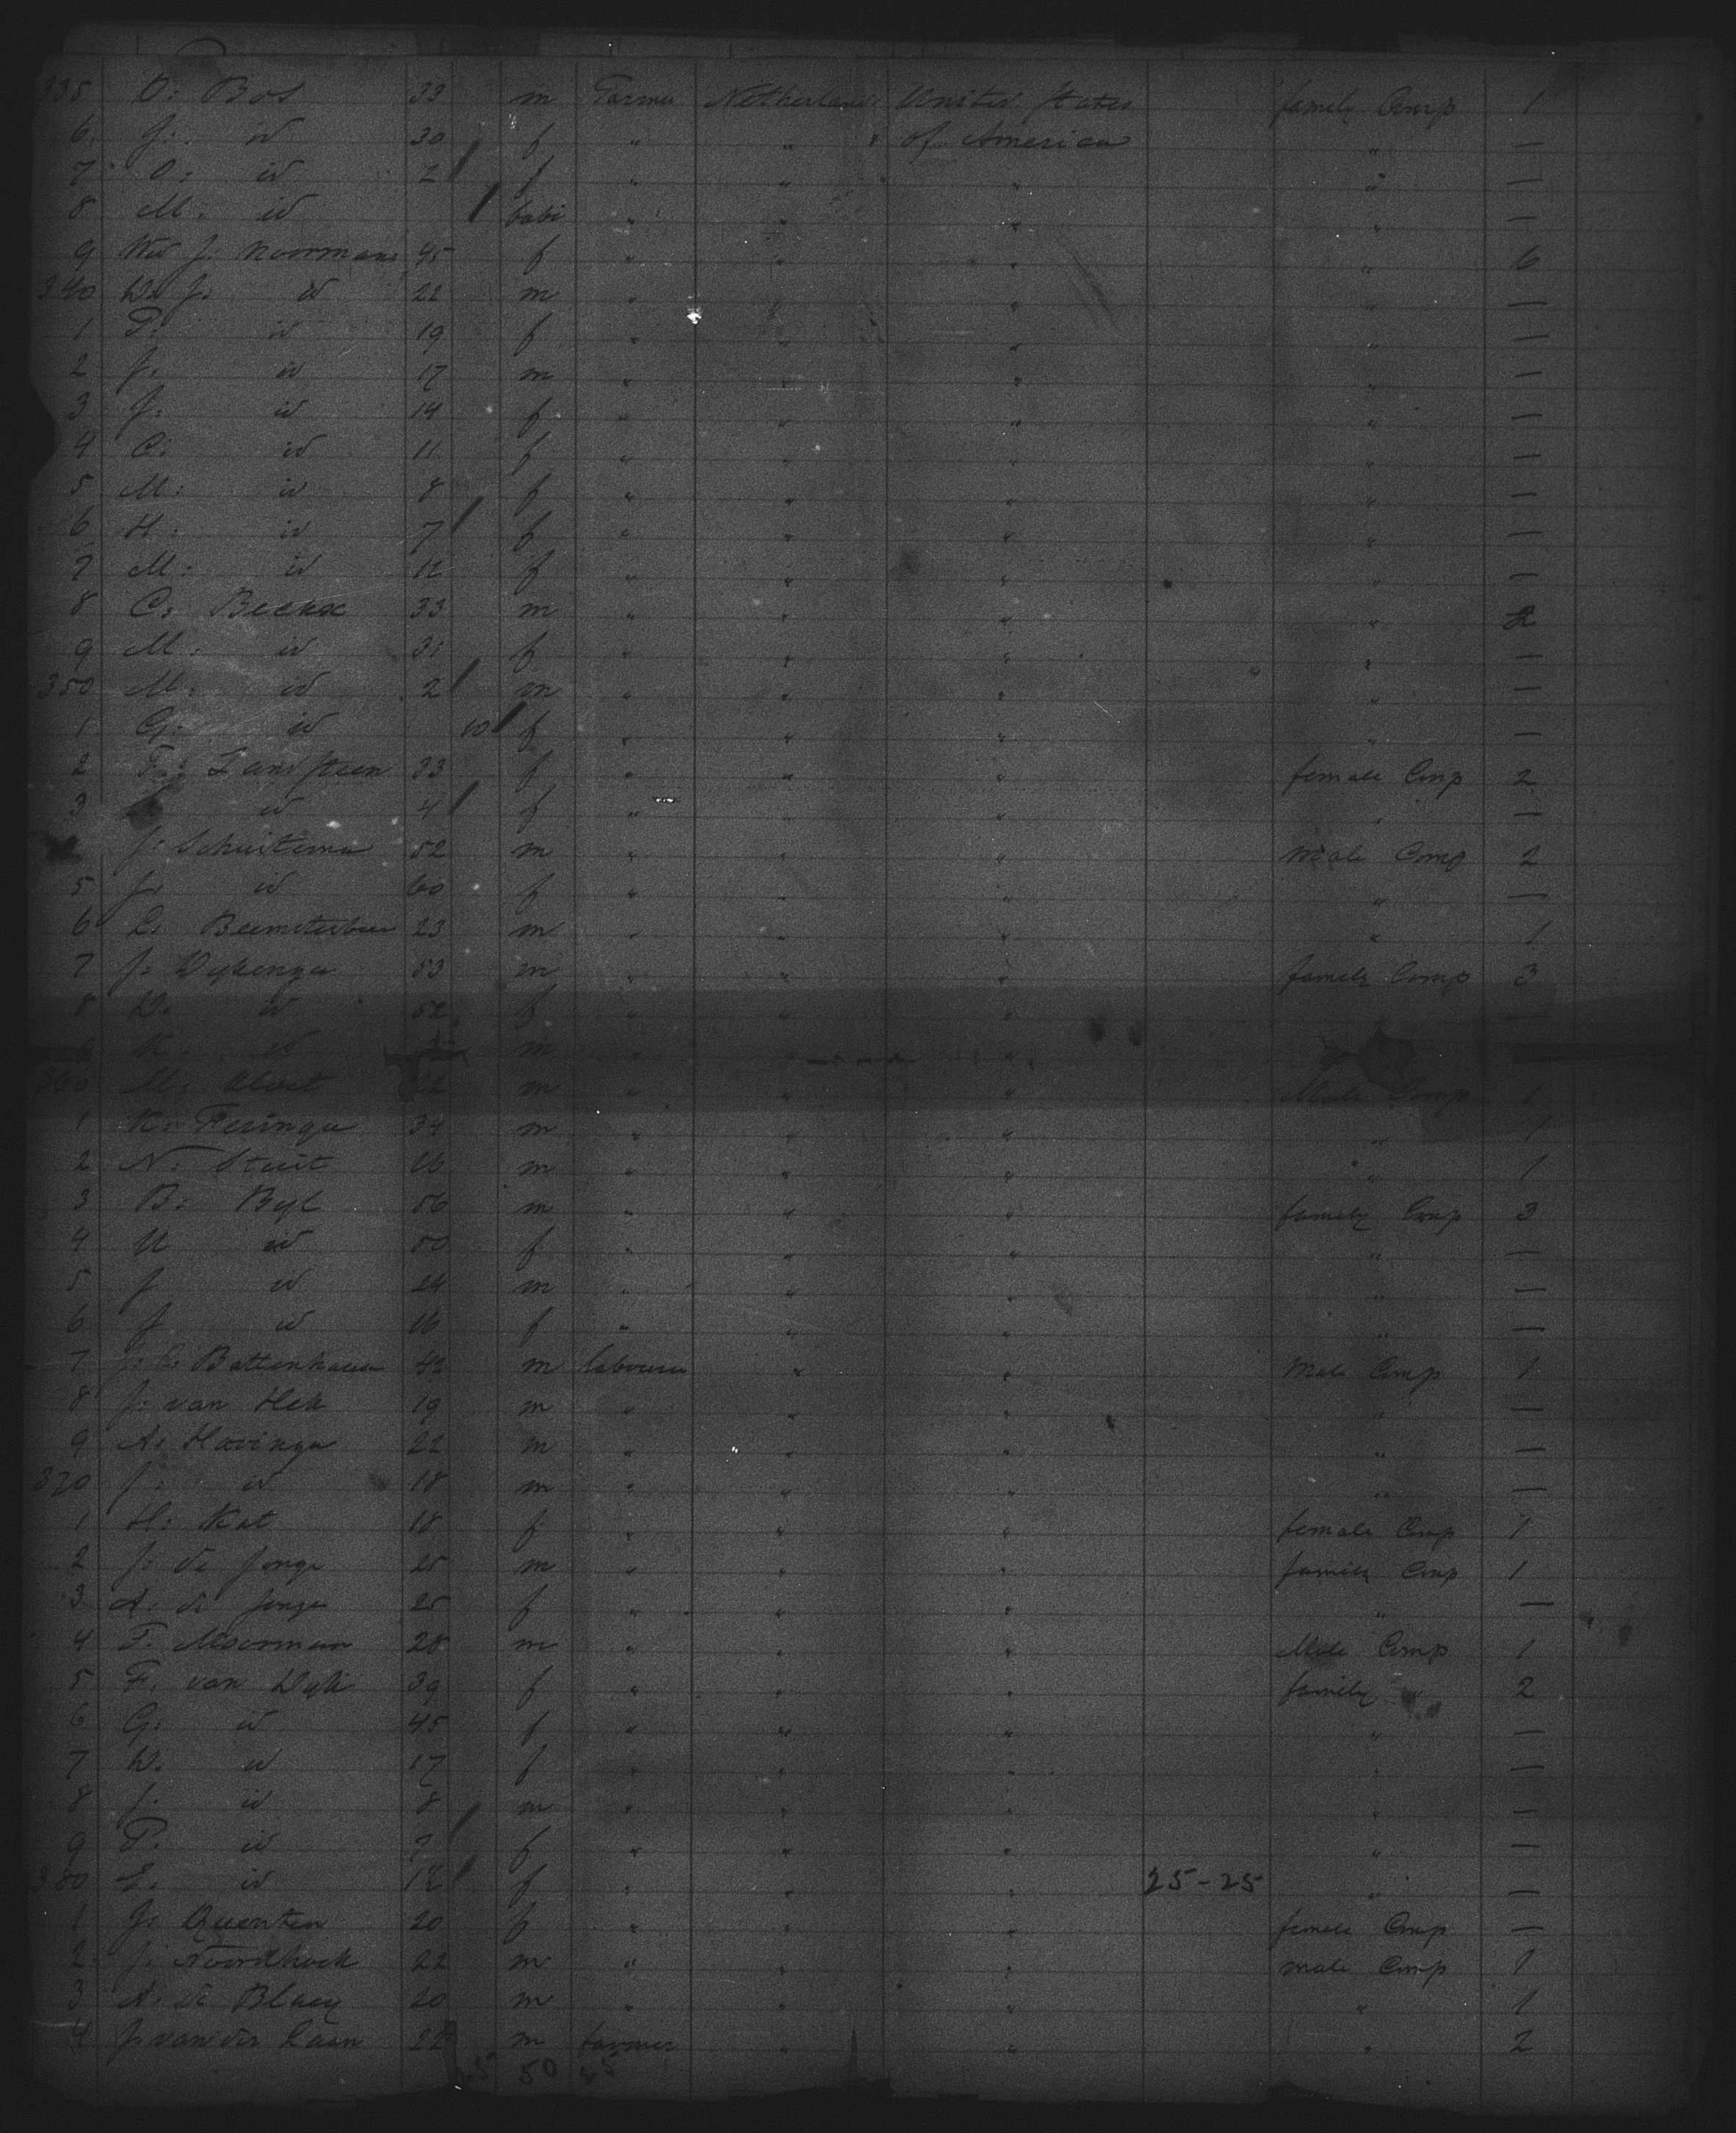 335 O: Bos 33 m Farmer Netherland United States family Comp 1
6 J: id 30 f " " of America " —
7 O: id 2 f " " " " —
8 M: id babi " " " " —
9 Wed J: Noorman 45 f " " " " 6
340 W: J: id 22 m " " " " —
1 T: id 19 f " " " " —
2 J: id 17 m " " " " —
3 J: id 14 f " " " " —
4 C: id 11 f " " " " —
5 M: id 8 f " " " " —
6 H: id 7 f " " " " —
7 M: id 12 f " " " " —
8 C: 33 m " " " "
9 M: id 31 f " " " " —
350 M: id 2 m " " " " —
1 G: id 10 f " " " " —
2 33 f " " " female Comp 2
3 id 4 f " " " " —
J: Schuitema 52 m " " " male Comp 2
5 J: id 60 f " " " " —
6 23 m " " " " 1
7 J: Dykenga 53 m " " " family Comp 3
8 D: id 52 f " " " —
K: id m " "
360 M: m " " " Male Comp 1
1 K: Feringa 34 m " " " " 1
2 N: Stuit 16 m " " " " 1
3 B: Byl 56 m " " " family Comp 3
4 id 50 f " " " " —
5 J id 24 m " " " " —
6 J id 16 f " " " " —
7 J: C: Battenhausen 42 m labourer " " Male Comp 1
8 J: van Hek 19 m " " " " —
9 A: Havinga 22 m " " " " —
370 J: id 18 m " " " " —
1 H: Kat 18 f " " " female Comp 1
2 J: de Jonge 25 m " " " family Comp 1
3 A: de Jonge 25 f " " " " —
4 T. Moorman 28 m " " " Male Comp 1
5 F. van Dyk 39 f " " " family " 2
6 G: id 45 f " " " " —
7 D. id 17 f " " " " —
8 J. id 8 m " " " " —
9 T. id 7 f " " " " —
380 E. id f " " " 25-25 " —
1 J: Quenten 20 f " " " female Comp —
2 J: Noordhoek 22 m " " " male Comp 1
3 A: de Blaey 20 m " " " " 1
4 J: van der Laan 22 m farmer " " " 2
50